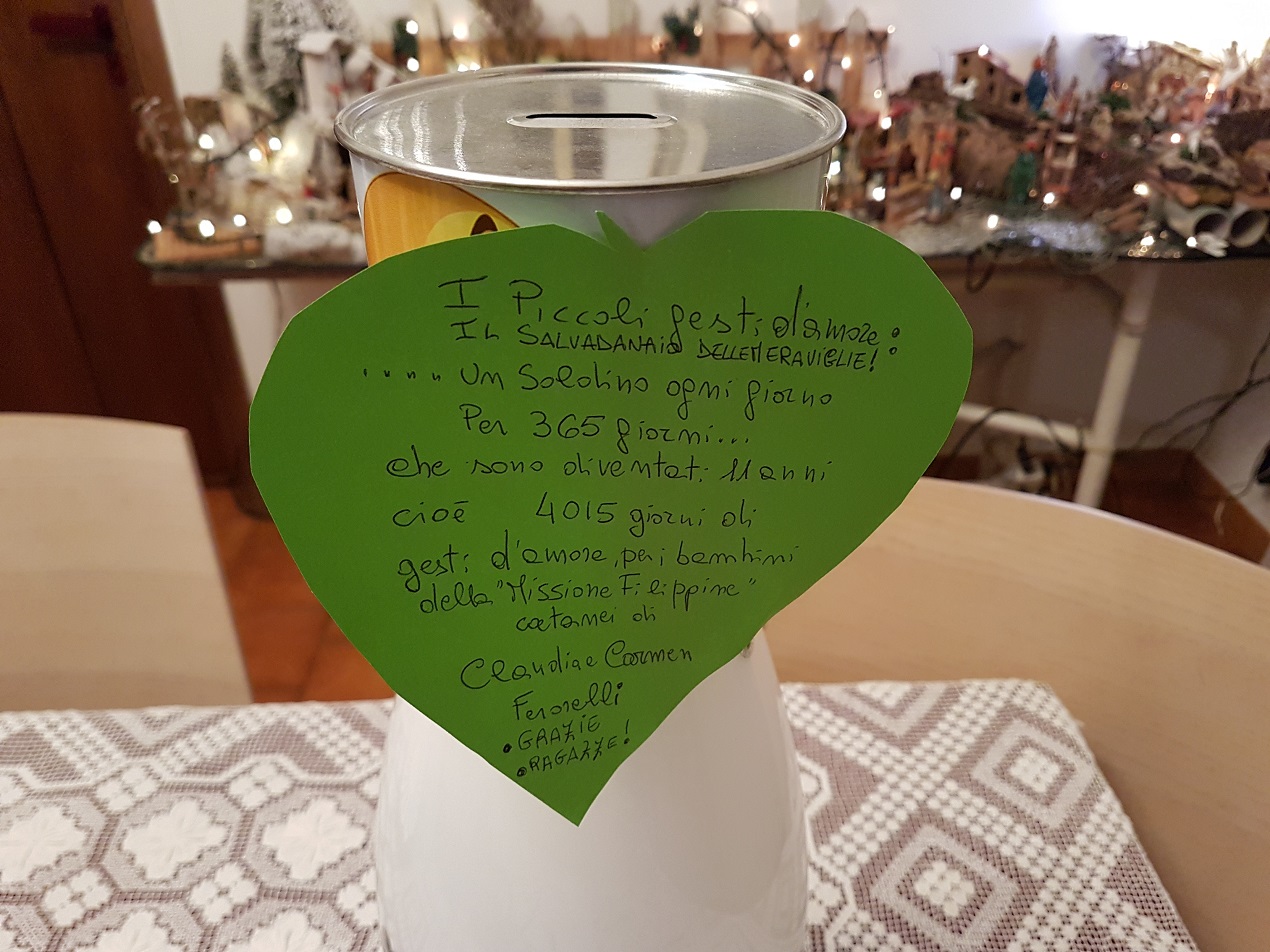 I Piccoli gesti d'amore:
IL SALVADANAIO DELLE MERAVIGLIE!
.... Un Soldino ogni giorno
Per 365 giorni...
che sono diventati 11 anni
cioè 4015 giorni di
gesti d'amore, per i bambini
della "Missione Filippine"
di
Claudia e Carmen
Ferorelli
• GRAZIE
• RAGAZZE!